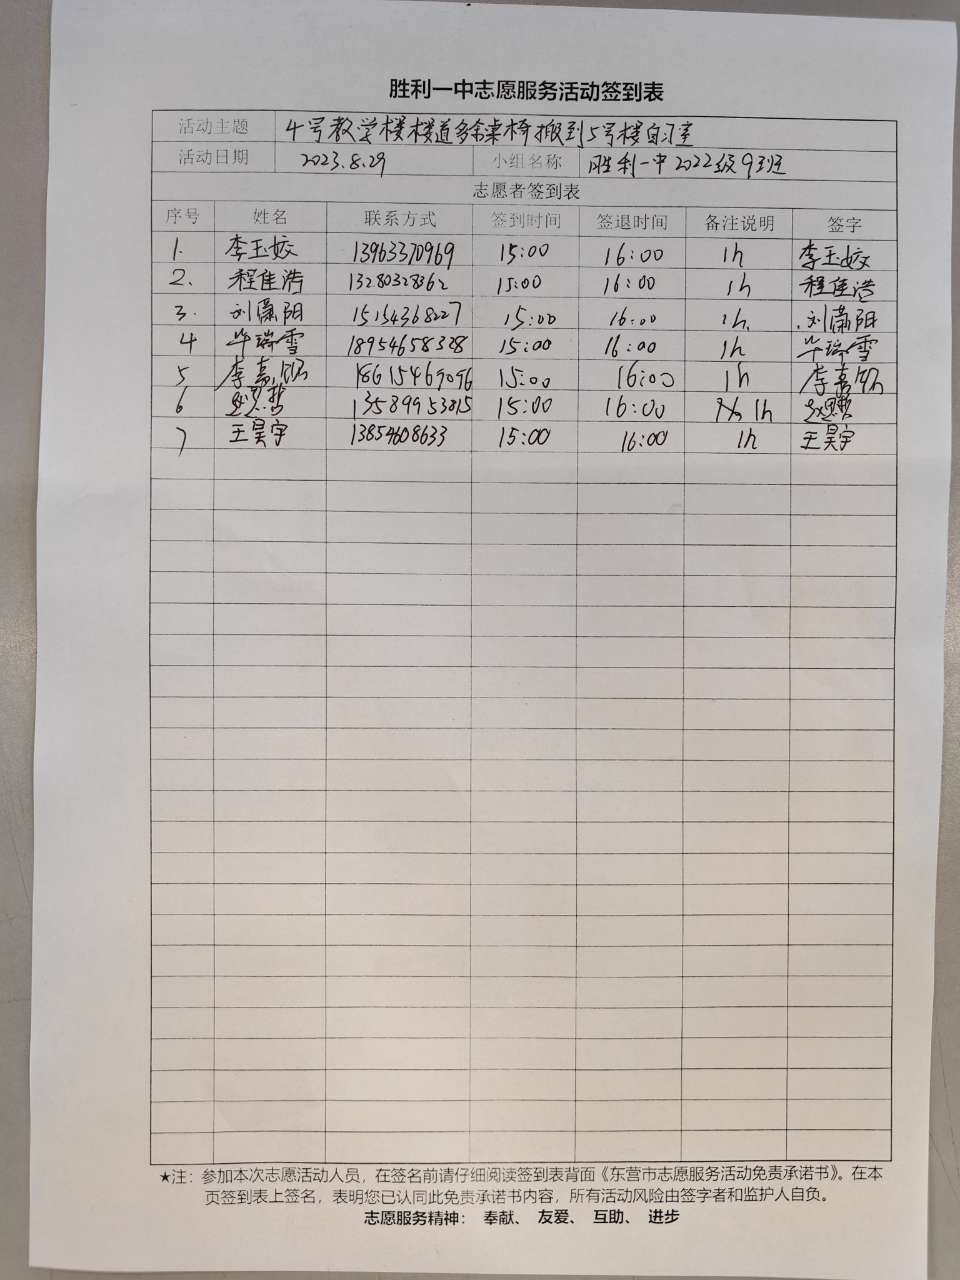 胜利一中志愿服务活动签到表
活动主题 4号教学楼楼道多余桌椅搬到5号楼自习室
活动日期 2023.8.29 小组名称 胜利一中2022级9班
志愿者签到表
序号 姓名 联系方式 签到时间 签退时间 备注说明 签字
1. 李玉姣 13963370969 15:00 16:00 1h 李玉姣
2. 程佳浩 13280328362 15:00 16:00 1h 程佳浩
3. 刘潇阳 15154368227 15:00 16:00 1h. 刘潇阳
4 毕瑞雪 18954658328 15:00 16:00 1h 毕瑞雪
5 李嘉 18615469096 15:00 16:00 1h 李嘉
6 13589953815 15:00 16:00 1h
7 王昊宇 13854608633 15:00 16:00 1h 王昊宇
★注：参加本次志愿活动人员，在签名前请仔细阅读签到表背面《东营市志愿服务活动免责承诺书》。在本
页签到表上签名，表明您已认同此免责承诺书内容，所有活动风险由签字者和监护人自负。
志愿服务精神： 奉献、 友爱、 互助、 进步